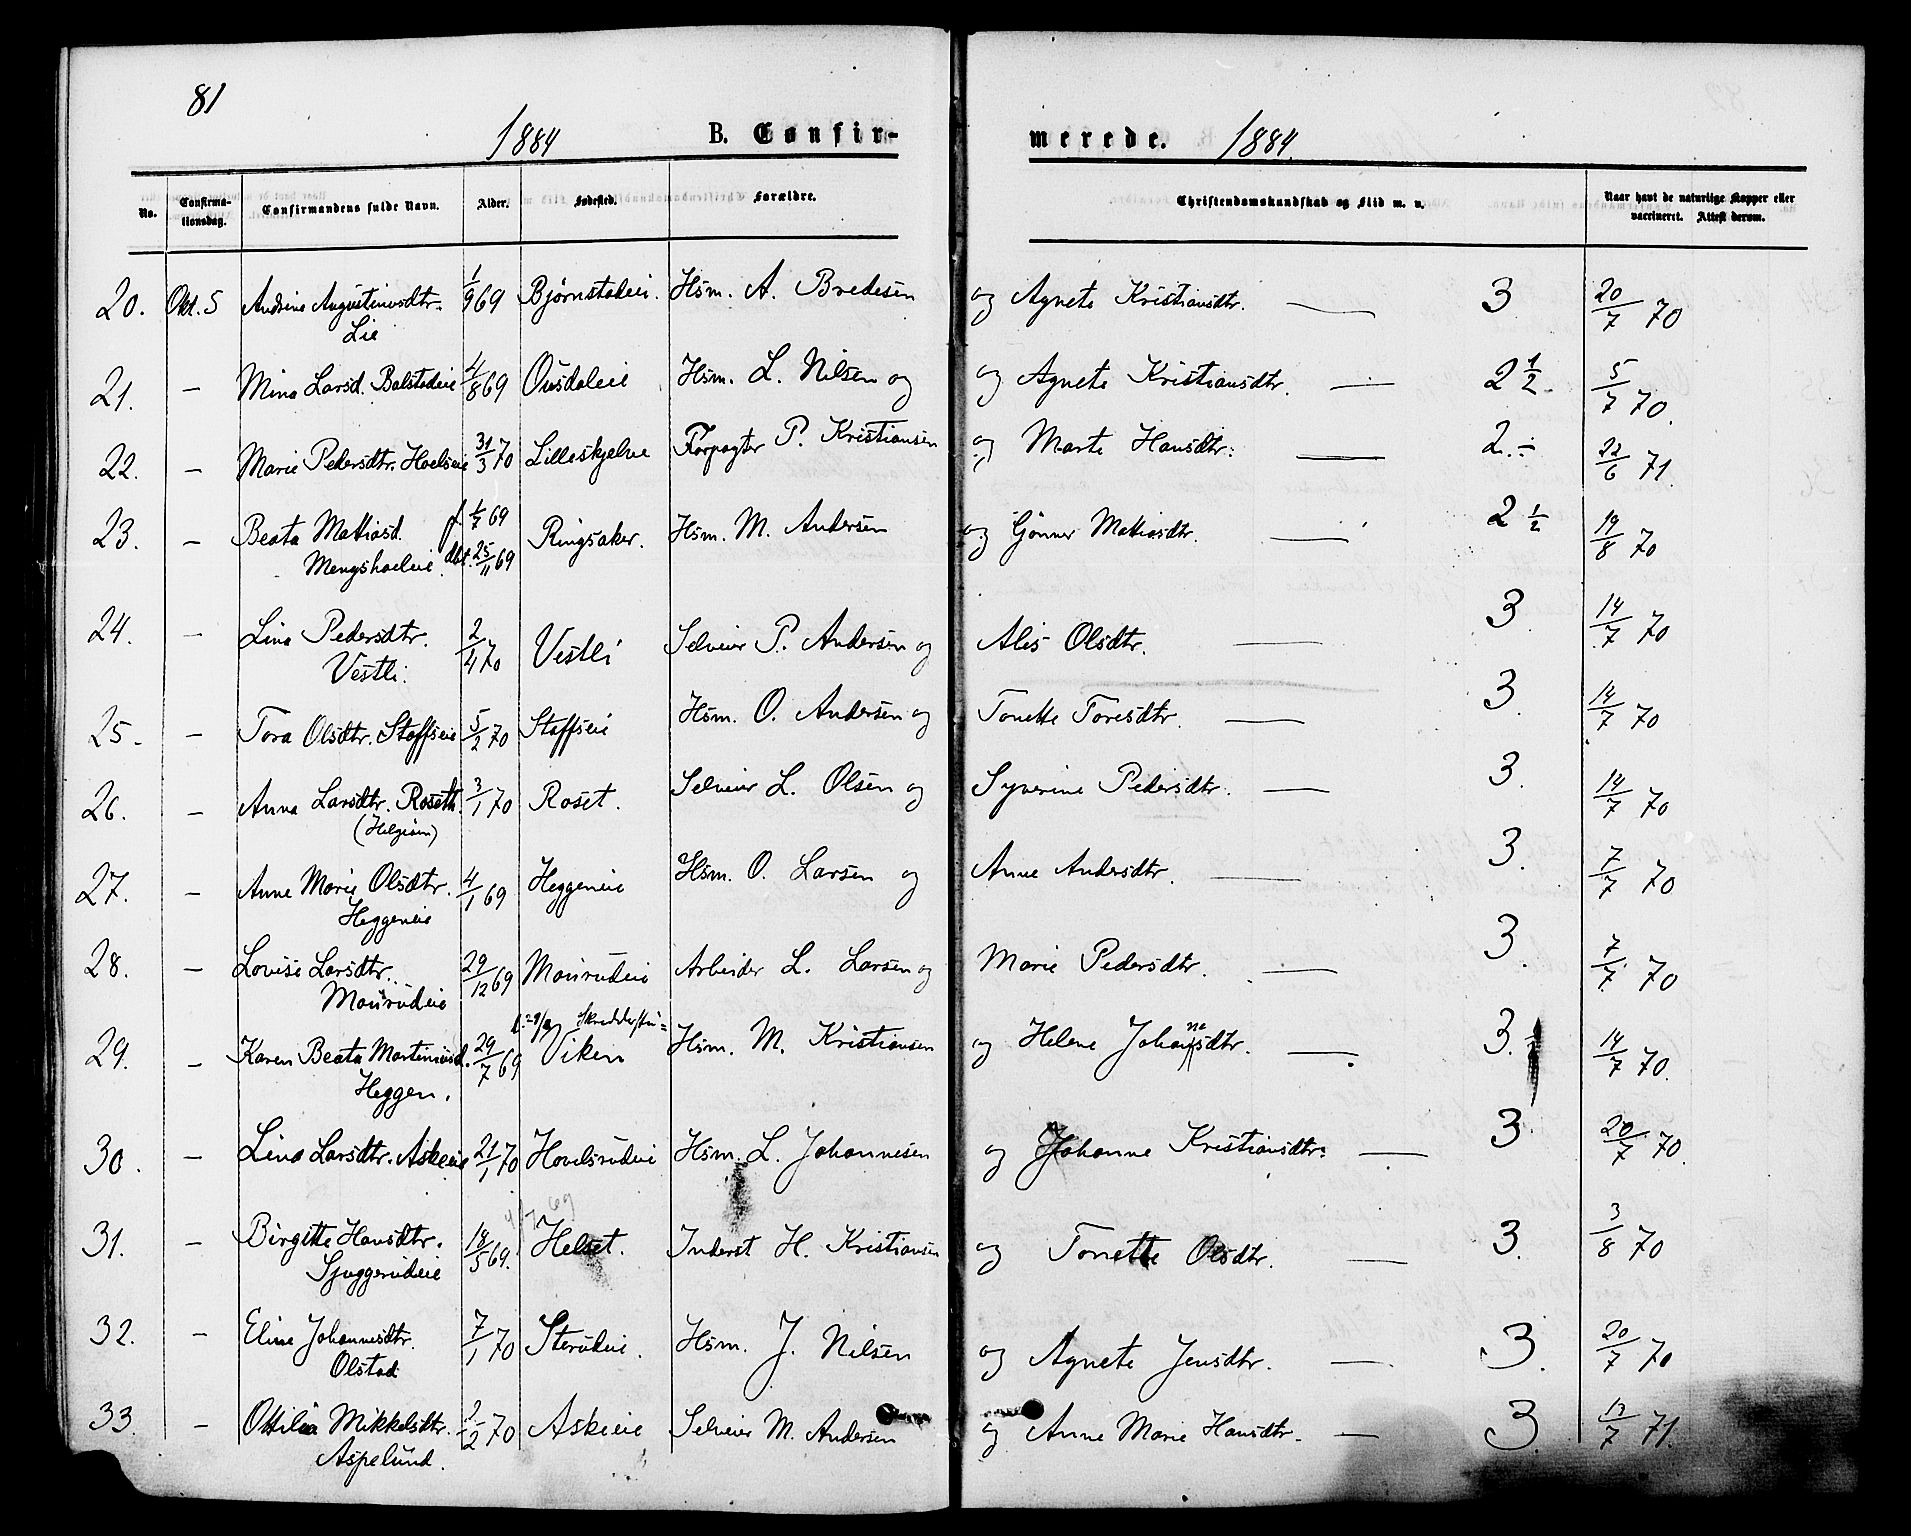 81
1884 B. Confir- merede. 1884.
No. Confirma-tionsdag. Confirmandens fulde Navn. Alder. Fødested. Forældre. Christendomskundskab og Flid m. v. Naar havt de naturlige Kopper eller vaccineret. Attest derom.
20. Okt. 5 Andrine Augustinusdtr. 1/9 69 Bjørnstadeie. Hsm. A. Bredesen og Agnete Kristiansdtr. — 3 20/7 70
Lie
21. — Mina Larsd. Balstadeie 4/8 69 Ousdaleie Hsm. L. Nilsen og og Agnete Kristiansdtr. — 2 1/2 5/7 70.
22. — Marie Pedersdtr. Hoelseie 31/3 70 Lilleskjelve Forpagter P. Kristiansen og Marte Hansdtr. — 2.÷ 22/6 71.
23. — Beata Matiasd. f 1/7 69 Ringsaker. Hsm. M. Andersen og Gjønner Matiasdtr. — 2 1/2 19/8 70
Mengshoeleie. dbt. 25/11 69
24. — Lina Pedersdtr. 2/4 70 Vestli Selveier P. Andersen og Alis Olsdtr. — 3 14/7 70
Vestli.
25. — Tora Olsdtr. Staffseie 5/2 70 Staffseie Hsm. O. Andersen og Tonette Toresdtr. — 3. 14/7 70
26. — Anna Larsdtr. Roseth. 3/1 70 Roset. Selveier L. Olsen og Syverine Pedersdtr. — 3. 14/7 70
27. — Anne Marie Olsdtr. 4/1 69 Heggeneie Hsm. O. Larsen og Anne Andersdtr. — 3. 7/7 70
Heggeneie
28. — Lovise Larsdtr. 29/12 69 Maurudeie Arbeider L. Larsen og Marie Pedersdtr. — 3. 7/7 70
Maurudeie
29. — Karen Beata Martinusd. 29/7 69 Viken Hsm. M. Kristiansen og Helene Johannesdtr. — 3. 14/7 70.
Heggen.
30. — Lina Larsdtr. Askeie 21/1 70 Hovelsrudeie Hsm. L. Johannesen og Johanne Kristiansdtr. — 3 20/7 70.
31. — Birgitte Hansdtr. 18/5 69. Helset. Inderst H. Kristiansen og Tonette Olsdtr. — 3. 3/8 70
Sjuggerudeie
32. — Eline Johannesdtr. 7/1 70 Sterudeie. Hsm. J. Nilsen og Agnete Jensdtr. — 3. 20/7 70
Olstad
33. — Ottilia Mikkelsdtr. 2/2 70 Askeie Selveier M. Andersen og Anne Marie Hansdtr. — 3. 13/7 71.
Aspelund.